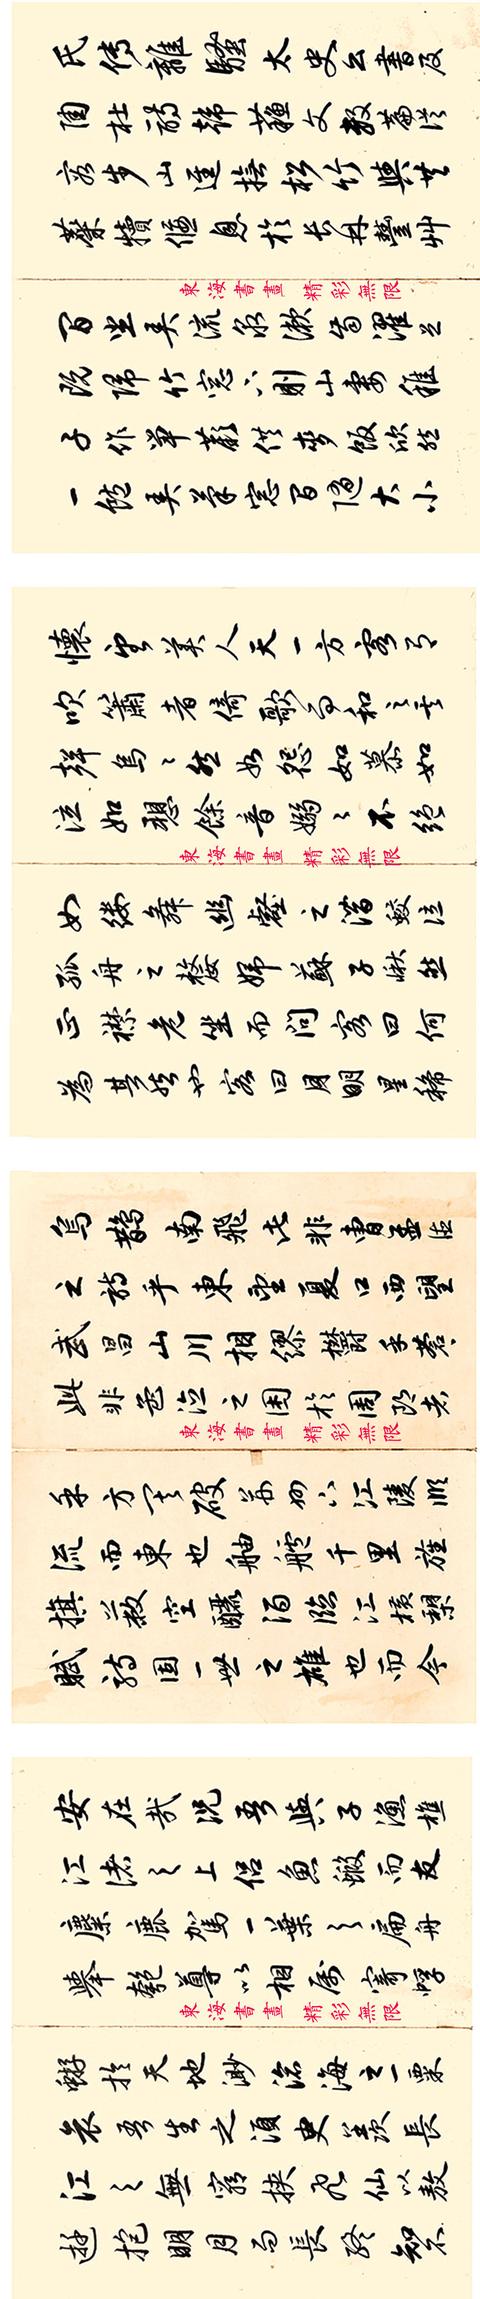 氏傳離騷太史公書及
陶杜詩韓蘇文數篇從
容步山逕撫松竹與
麛犢偃息於長林豐艸
東海書畫 精彩無限
間坐弄流泉漱齒濯足
既歸竹窓下則山妻稚
子作筍蕨供麥飯欣然
一飽弄筆窓間隨大小
懷望美人天一方客有
吹簫者倚歌而和之其
聲烏〻然如怨如慕如
泣如愬餘音嫋〻不絕
東海書畫 精彩無限
如縷舞幽壑之潛蛟泣
孤舟之嫠婦蘇子愀然
正襟危坐而問客曰何
為其然也客曰月明星稀
烏鵲南飛此非曹孟德
之詩乎東望夏口西望
武昌山川相繆鬱乎蒼〻
此非孟德之困於周郎者
東海書畫 精彩無限
乎方其破荊州下江陵順
流而東也舳艫千里旌
旗蔽空釃酒臨江橫槊
賦詩固一世之雄也而今
安在哉況吾與子漁樵
江渚之上侶魚蝦而友
麋鹿駕一葉之扁舟
舉匏尊以相屬寄蜉
東海書畫 精彩無限
蝣於天地渺滄海之一粟
哀吾生之須臾羨長
江之無窮挾飛仙以遨
遊抱明月而長終知不